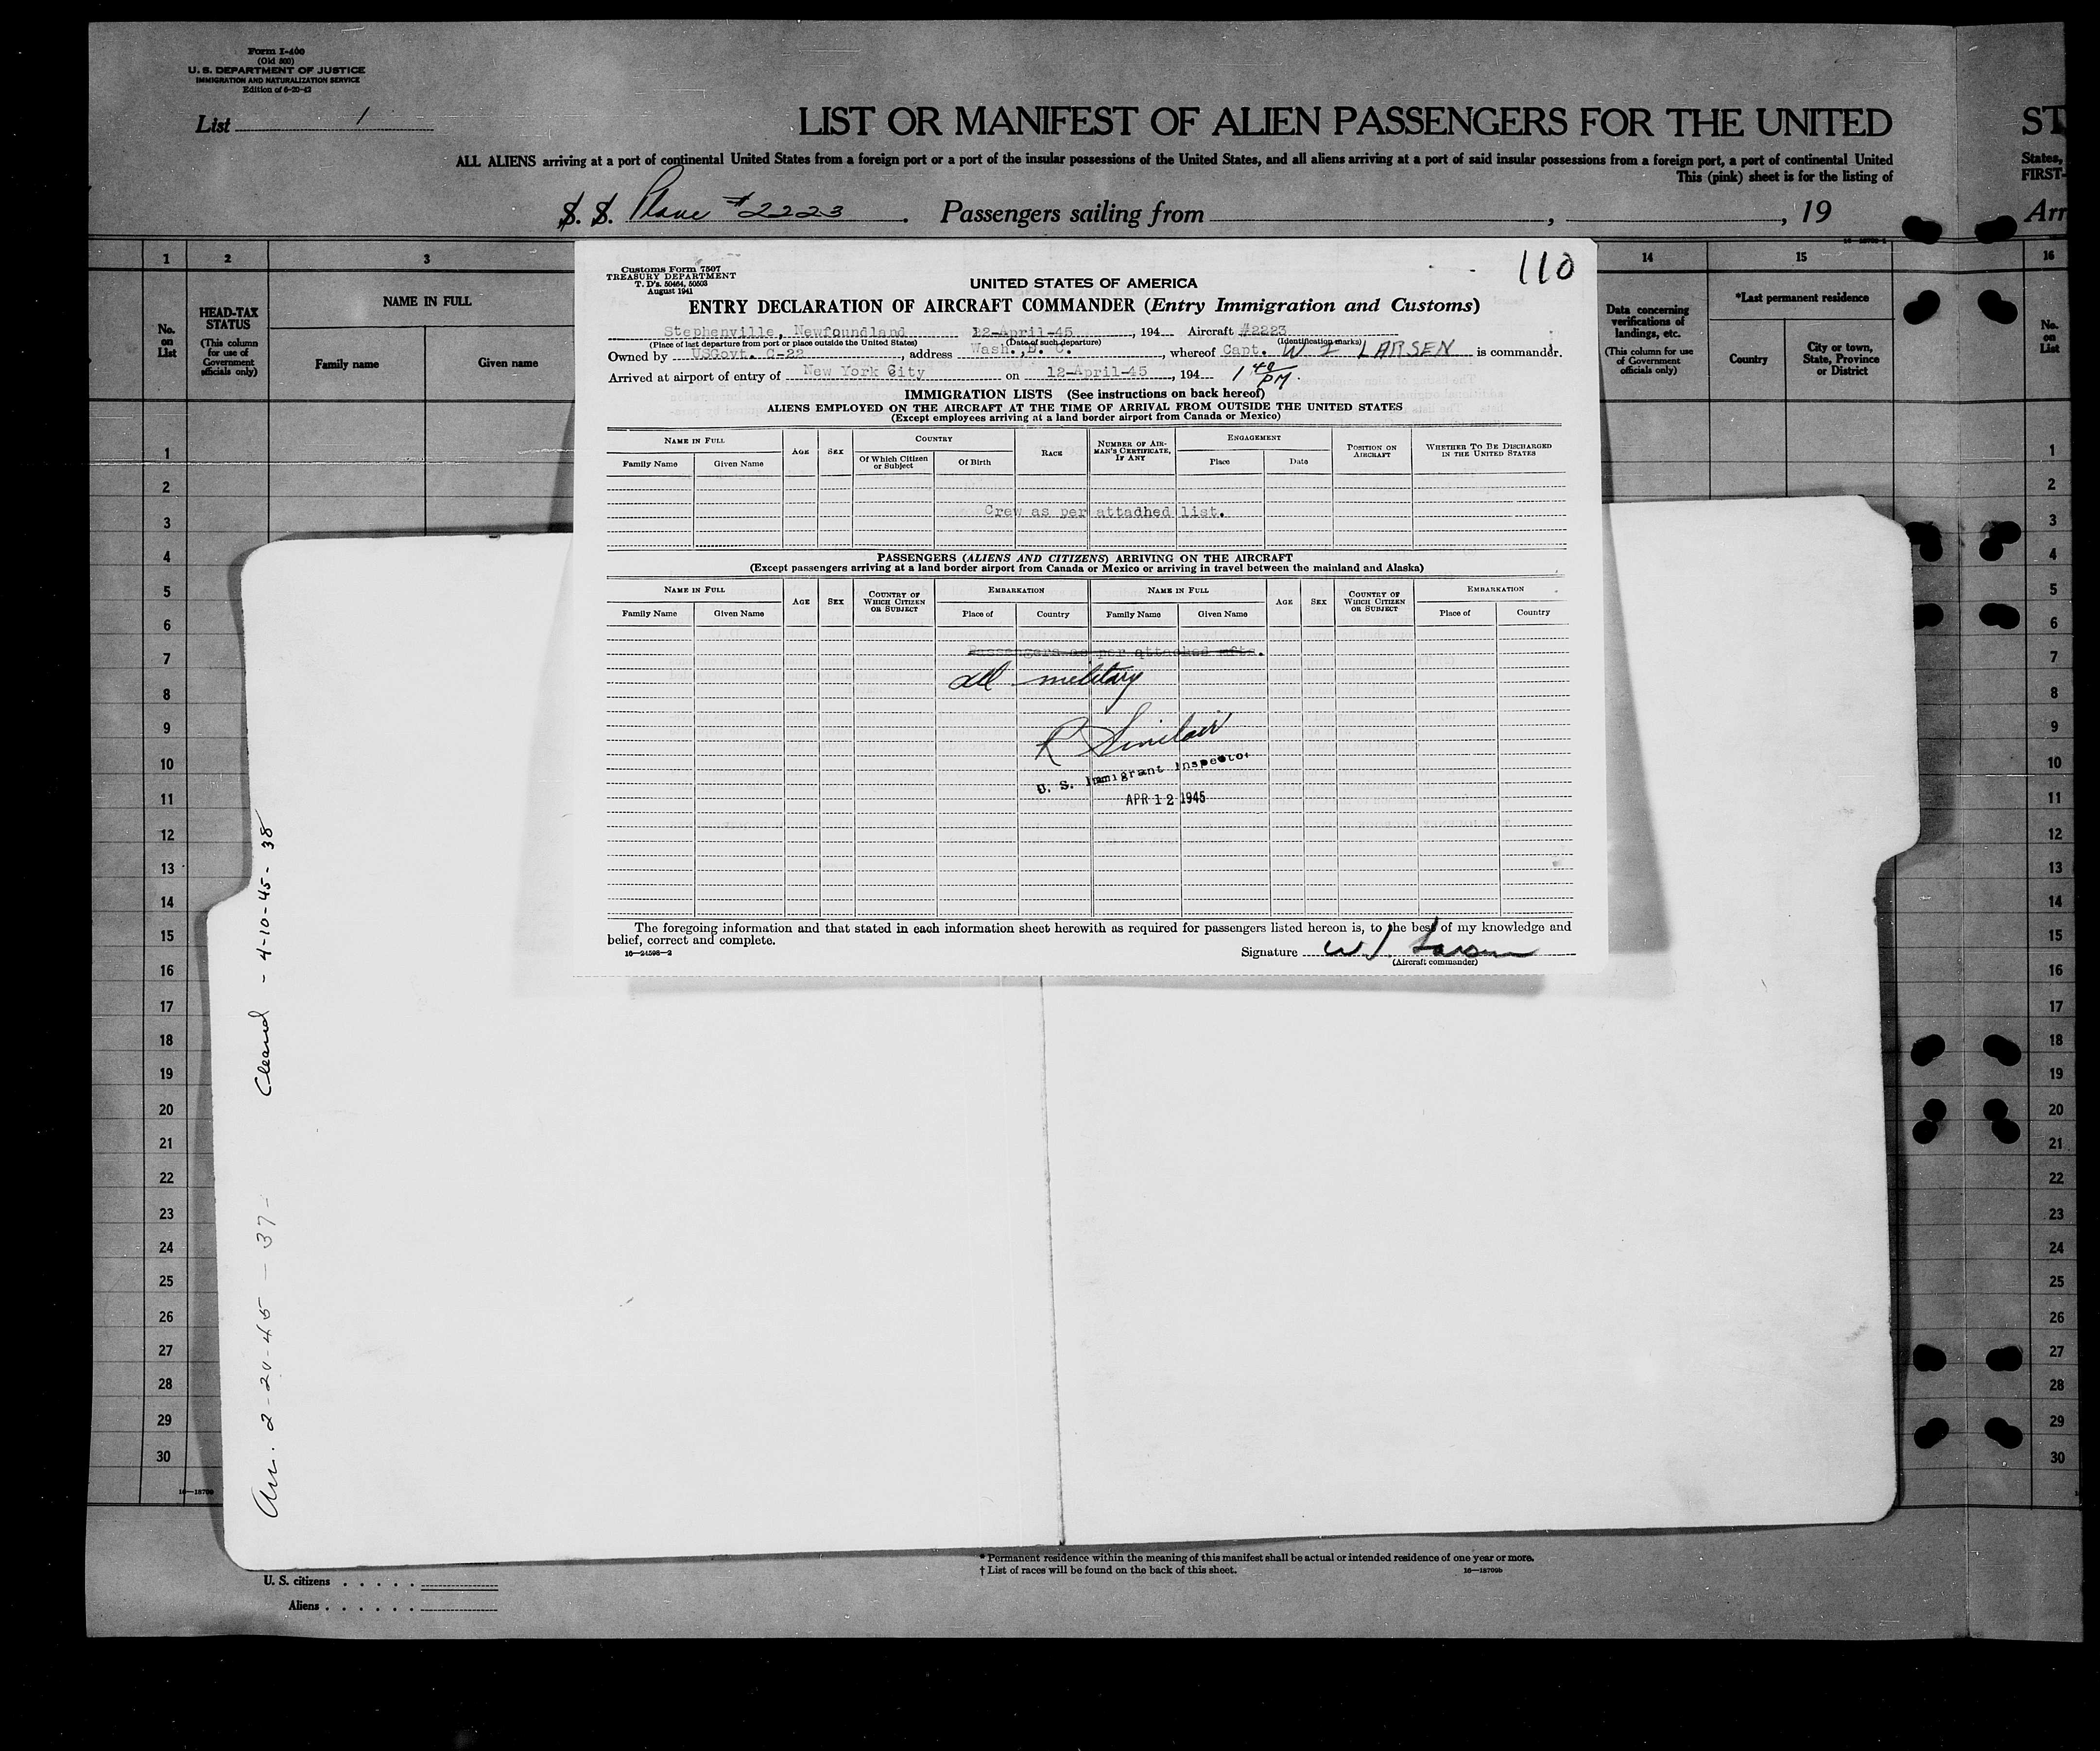 Form I-400
(Old 500)
U. S. DEPARTMENT OF JUSTICE
IMMIGRATION AND NATURALIZATION SERVICE
Edition of 6-20-42
List 1
LIST OR MANIFEST OF ALIEN PASSENGERS FOR THE UNITED
ST
ALL ALIENS arriving at a port of continental United States from a foreign port or a port of the insular possessions of the United States, and all aliens arriving at a port of said insular possessions from a foreign port, a port of continental United
States,
This (pink) sheet is for the listing of
FIRST-
S. S. Plane #2223 . Passengers sailing from , , 19
Arr
1 2 3 14 15 16
No. on List
HEAD-TAX STATUS
(This column for use of Government officials only)
NAME IN FULL
Family name Given name
Data concerning verifications of landings, etc.
(This column for use of Government officials only)
*Last permanent residence
Country
City or town, State, Province or District
No. on List
Customs Form 7507
TREASURY DEPARTMENT
T. D's. 50464, 50503
August 1941
110
UNITED STATES OF AMERICA
ENTRY DECLARATION OF AIRCRAFT COMMANDER (Entry Immigration and Customs)
Stephenville, Newfoundland 12-April-45 , 194 Aircraft #2223
(Place of last departure from port or place outside the United States) (Date of such departure) (Identification marks)
Owned by USGovt. C-22 , address Wash., D. C. , whereof Capt. W I LARSEN is commander.
Arrived at airport of entry of New York City on 12-April-45 , 194 1 40 PM.
IMMIGRATION LISTS (See instructions on back hereof)
ALIENS EMPLOYED ON THE AIRCRAFT AT THE TIME OF ARRIVAL FROM OUTSIDE THE UNITED STATES
(Except employees arriving at a land border airport from Canada or Mexico)
NAME IN FULL AGE SEX COUNTRY RACE NUMBER OF AIRMAN'S CERTIFICATE, IF ANY ENGAGEMENT POSITION ON AIRCRAFT WHETHER TO BE DISCHARGED IN THE UNITED STATES
Family Name Given Name Of Which Citizen or Subject Of Birth Place Date
Crew as per attadhed list.
PASSENGERS (ALIENS AND CITIZENS) ARRIVING ON THE AIRCRAFT
(Except passengers arriving at a land border airport from Canada or Mexico or arriving in travel between the mainland and Alaska)
NAME IN FULL AGE SEX COUNTRY OF WHICH CITIZEN OR SUBJECT EMBARKATION NAME IN FULL AGE SEX COUNTRY OF WHICH CITIZEN OR SUBJECT EMBARKATION
Family Name Given Name Place of Country Family Name Given Name Place of Country
Passengers as per attached
all military
R Sinclair
U. S. Immigrant Inspector
APR 12 1945
The foregoing information and that stated in each information sheet herewith as required for passengers listed hereon is, to the best of my knowledge and
belief, correct and complete.
16-24598-2
Signature W I Larsen
(Aircraft commander)
1 1
2 2
3 3
4 4
5 5
6 6
7 7
8 8
9 9
10 10
11 11
12 12
13 13
14 14
15 15
16 16
17 17
18 18
19 19
20 20
21 21
22 22
23 23
24 24
25 25
26 26
27 27
28 28
29 29
30 30
Arr. 2-20-45 - 37 - Cleared - 4-10-45 - 38
* Permanent residence within the meaning of this manifest shall be actual or intended residence of one year or more.
† List of races will be found on the back of this sheet.
16-18709b
U. S. citizens
Aliens